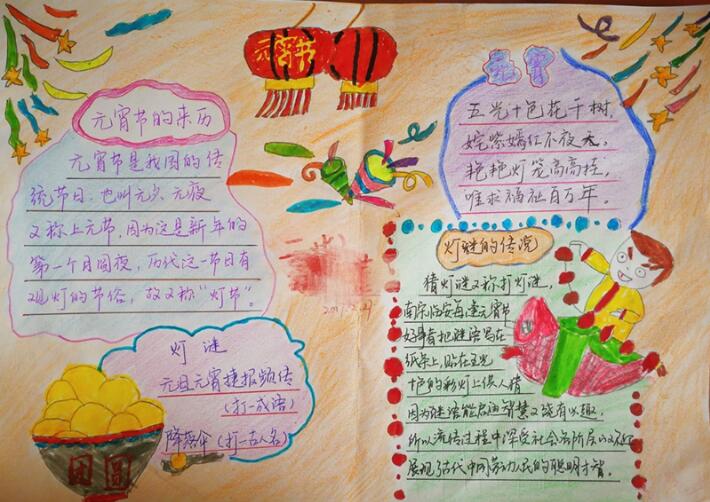 元宵节
元宵节的来历
元宵节是我国的传
统节日，也叫元夕、元夜
又称上元节，因为这是新年的
第一个月圆夜，历代这一节日有
观灯的节俗，故又称“灯节”。
灯谜
元旦元宵捷报频传
（打一成语）
降落伞（打一古人名）
团圆
元宵
五光十色花千树，
姹紫嫣红不夜天，
艳艳灯笼高高挂，
唯求福祉百万年。
灯谜的传说
猜灯谜又称打灯谜，
南宋临安每逢元宵节
好事者把谜语写在
纸条上，贴在五光
十色的彩灯上供人猜
因为谜语能启迪智慧又饶有兴趣，
所以流传过程中深受社会各阶层的
展现了古代中国劳动人民的聪明才智。